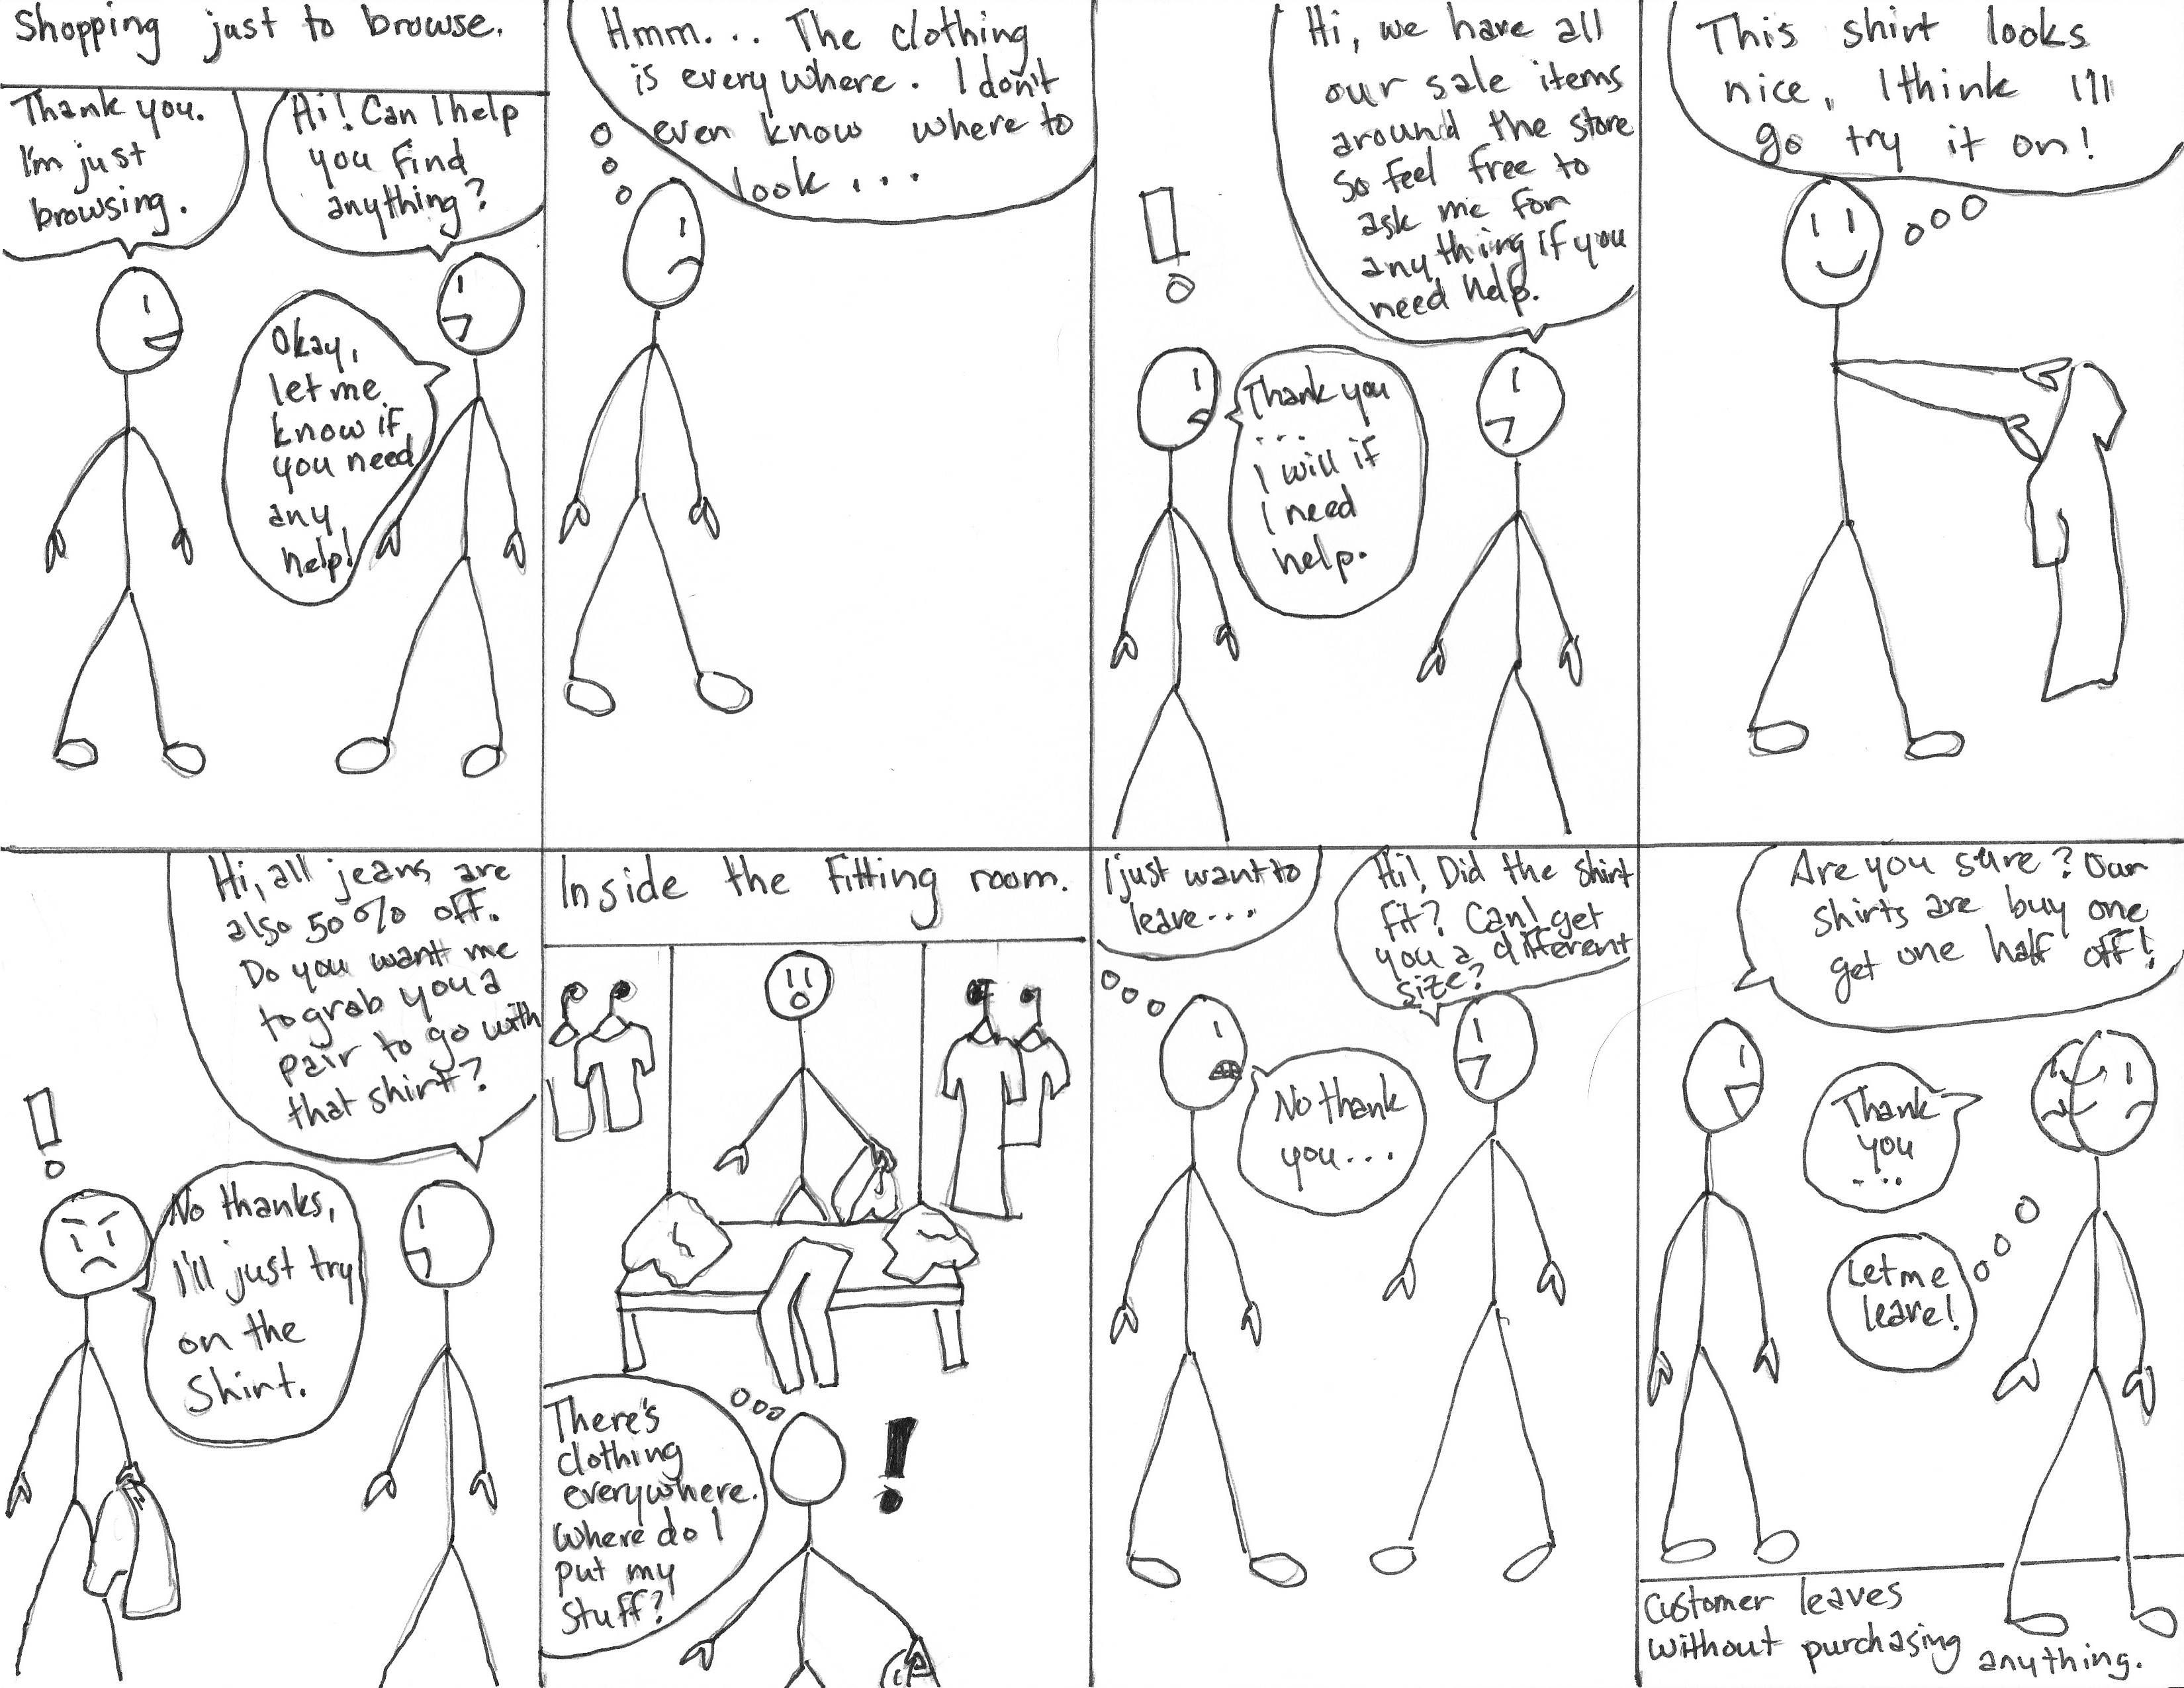 Shopping just to browse.
Hi! Can I help
you find
anything?
Thank you.
I'm just
browsing.
Okay,
let me
know if
you need
any
help!
Hmm... The clothing
is everywhere. I don't
even know where to
look...
Hi, we have all
our sale items
around the store
so feel free to
ask me for
anything if you
need help.
Thank you
...
I will if
I need
help.
This shirt looks
nice, I think I'll
go try it on!
Hi, all jeans are
also 50% off.
Do you want me
to grab you a
pair to go with
that shirt?
!
No thanks,
I'll just try
on the
shirt.
Inside the fitting room.
There's
clothing
everywhere.
Where do I
put my
stuff?
!
Hi! Did the shirt
fit? Can I get
you a different
size?
I just want to
leave...
No thank
you...
Are you sure? Our
shirts are buy one
get one half off!
Thank
you
...
Let me
leave!
Customer leaves
without purchasing anything.